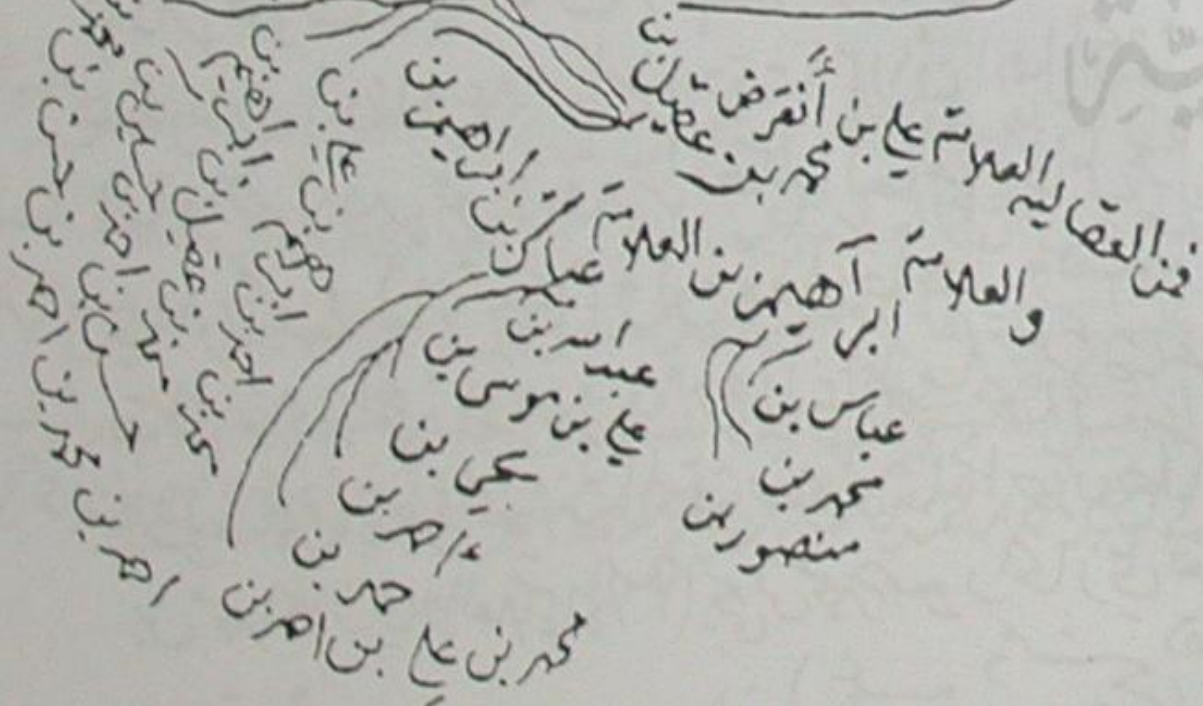 فمن العقاليه العلامة علي بن أنقرض
محمد بن عقيل بن
والعلامة ابراهيم بن العلامة عباس بن
ابراهيم بن
عباس بن
محمد بن
منصور بن
عبد الله بن
علي بن موسى بن
يحيى بن
احمد بن
حمد بن
محمد بن علي بن احمد بن
علي بن
ابراهيم بن
احمد بن
ابراهيم بن
بن عقيل بن
محمد بن
حسين بن
احمد بن
محمد
بن حسن بن احمد بن محمد بن احمد